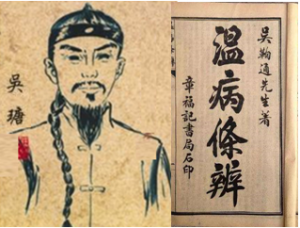 吳瑭
吳鞠通先生著
溫病條辨
章福記書局石印